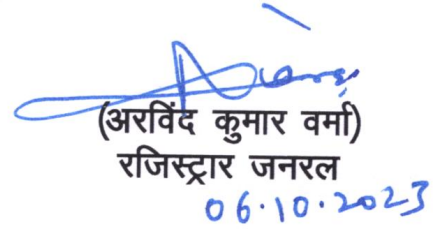 (अरविंद कुमार वर्मा)
रजिस्ट्रार जनरल
06.10.2023